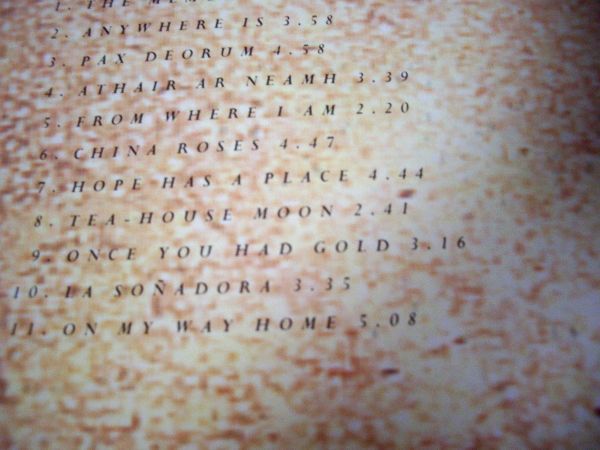 1. THE
2. ANYWHERE IS 3.58
3. PAX DEORUM 4.58
4. ATHAIR AR NEAMH 3.39
5. FROM WHERE I AM 2.20
6. CHINA ROSES 4.47
7. HOPE HAS A PLACE 4.44
8. TEA-HOUSE MOON 2.41
9. ONCE YOU HAD GOLD 3.16
10. LA SOÑADORA 3.35
11. ON MY WAY HOME 5.08